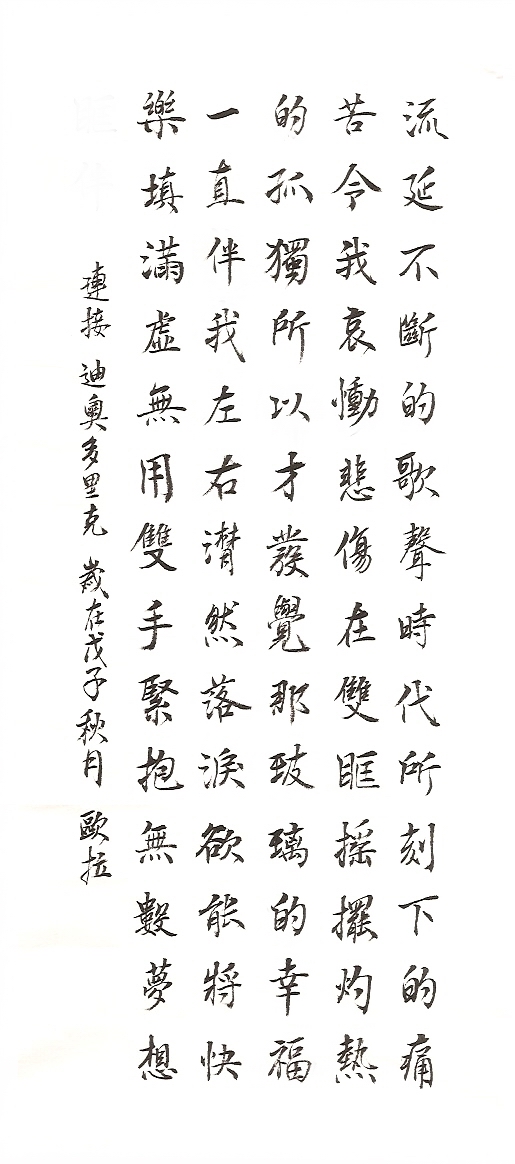 流延不斷的歌聲時代所刻下的痛
苦令我哀慟悲傷在雙眶搖擺灼熱
的孤獨所以才發覺那玻璃的幸福
一直伴我左右潸然落淚欲能將快
樂填滿虛無用雙手緊抱無數夢想
連接 迪奧多里克 歲在戊子秋月 歐拉